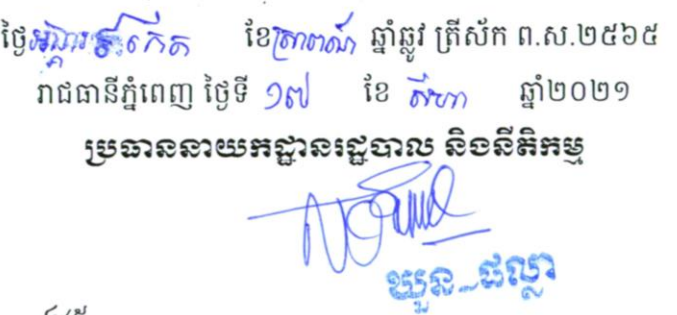 ថ្ងៃអង្គារ ១០កើត ខែស្រាពណ៍ ឆ្នាំឆ្លូវ ត្រីស័ក ព.ស.២៥៦៥
រាជធានីភ្នំពេញ ថ្ងៃទី ១៧ ខែ សីហា ឆ្នាំ២០២១
ប្រធាននាយកដ្ឋានរដ្ឋបាល និងនីតិកម្ម
ឃួន ផល្លា